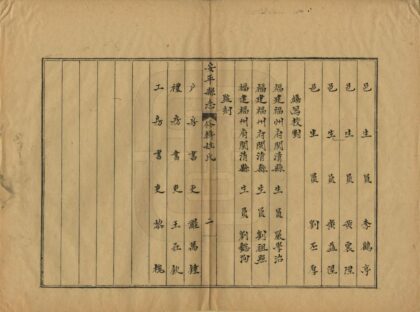 邑生員李鶴亭
邑生員黃裳陛
邑生員黃益陛
邑生員劉丕厚
繕寫校對
福建福州府閩清縣生員嚴學洽
福建福州府閩清縣生員劉祖照
福建福州府閩清縣生員劉
監刻
安平縣志
修輯姓氏
二
戶房書吏
萬鍾
禮房書吏王在欽
工房書吏黎槐